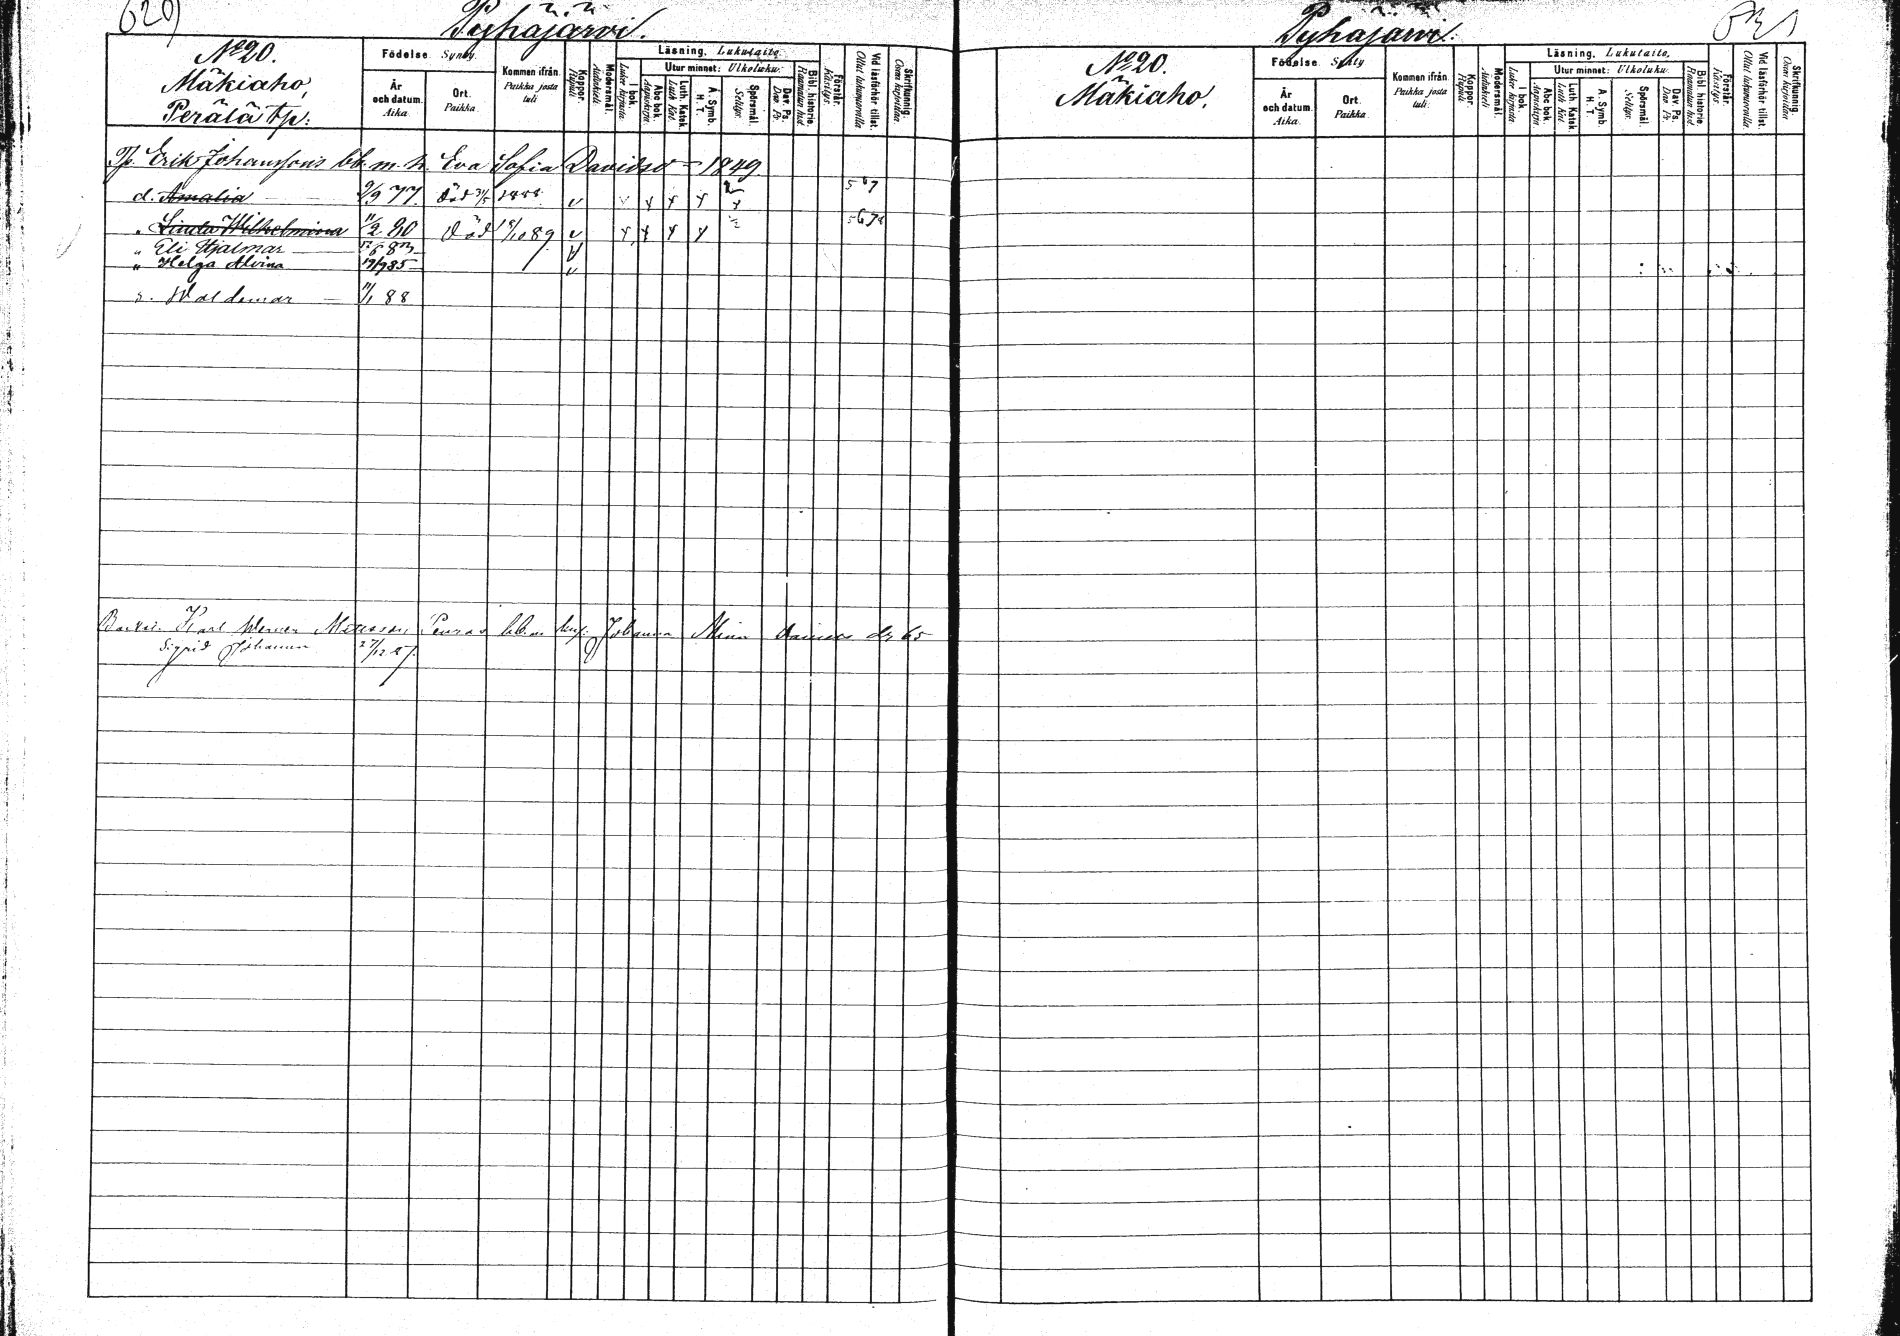 629
Pyhäjärvi.
No 20.
Mäkiaho,
Perälä tp.
Födelse. Synty.
År och datum. Aika.
Ort. Paikka.
Kommen ifrån. Paikka josta tuli.
Koppor. Rupuli
Modersmål. Äidinkieli
Läsning. Lukutaito.
I bok. Lukee kirjasta
Utur minnet: Ulkoluku:
Abc bok. Aapiskirja
Luth. Katek. Luth. Kat.
A. Symb. H. T.
Spörsmål. Selitys.
Dav. Ps. Dav. Ps.
Bibl. historie. Raamatun hist.
Förstår. Käsitys.
Vid läsförhör tillst. Ollut lukukunnalla
Skrifkunnig. Osaa kirjoittaa
Tp. Erik Johanssons bb. m. h. Eva Sofia Davidsd - 1849
d. Amalia 9/9 77. död 31/5 1888 v 5 6 7
" Linda Wilhelmina 11/2 80 död 18/10 89 v 5 6 7 8
" Eli Hjalmar 6 83
" Helga Alvina 19/9 85 v
s. Waldemar 11/1 88
Karl Werner bb. m. Johanna Mina 65
Sigrid Johanna 27/12 87.
631
Pyhäjärvi.
No 20.
Mäkiaho.
Födelse. Synty
År och datum. Aika.
Ort. Paikka.
Kommen ifrån. Paikka josta tuli.
Koppor. Rupuli.
Modersmål. Äidinkieli
Läsning. Lukutaito.
I bok. Lukee kirjasta
Utur minnet: Ulkoluku:
Abc bok. Aapiskirja
Luth. Katek. Luth. Kat.
A. Symb. H. T.
Spörsmål. Selitys.
Dav. Ps. Dav. Ps.
Bibl. historie. Raamatun hist.
Förstår. Käsitys.
Vid läsförhör tillst. Ollut lukukunnalla
Skrifkunnig. Osaa kirjoittaa